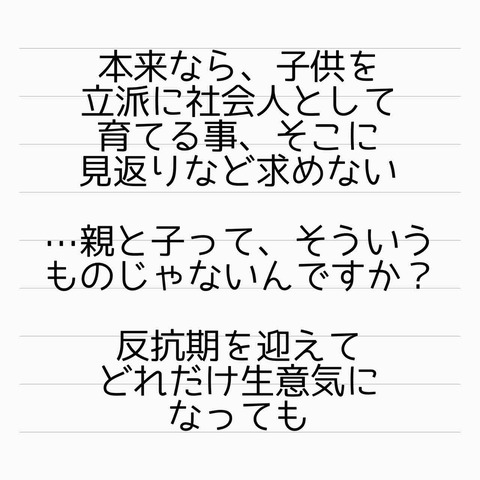 本来なら、子供を
立派に社会人として
育てる事、そこに
見返りなど求めない
…親と子って、そういう
ものじゃないんですか？
反抗期を迎えて
どれだけ生意気に
なっても